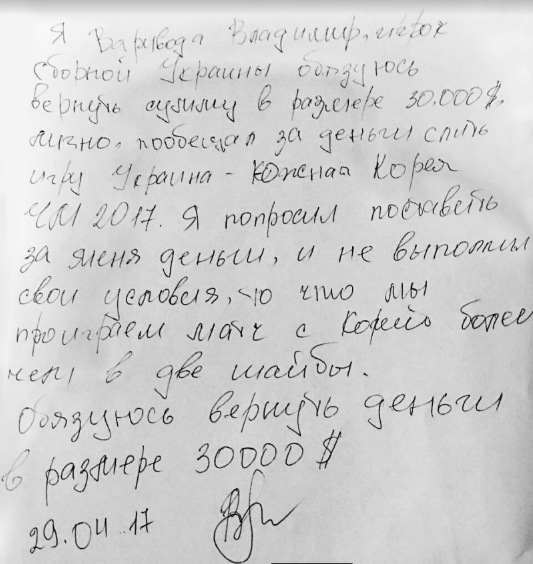 Я Варивода Владимир, игрок
сборной Украины обязуюсь
вернуть сумму в размере 30.000$,
лично. пообещал за деньги слить
игру Украина - Южная Корея
ЧМ 2017. Я попросил поставить
за меня деньги, и не выполнил
свои условия, то что мы
проиграем матч с Кореей более
чем в две шайбы.
Обязуюсь вернуть деньги
в размере 30000 $
29.04.17